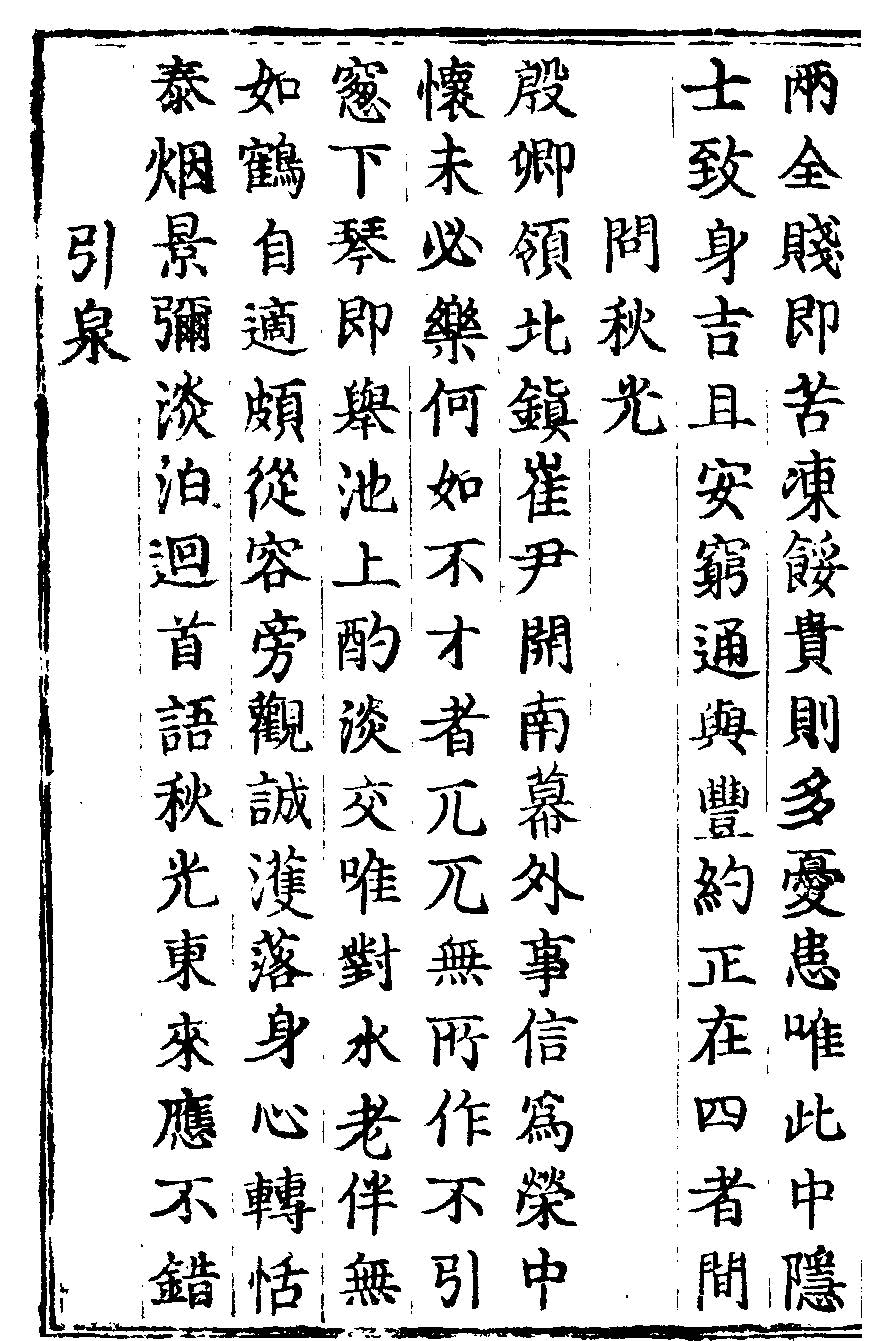 兩全賤即苦凍餒貴則多憂患唯此中隱
士致身吉且安窮通與豐約正在四者間
問秋光
殷卿領北鎮崔尹開南幕外事信爲榮中
懷未必樂何如不才者兀兀無所作不引
窻下琴即舉池上酌淡交唯對水老伴無
如鶴自適頗從容旁觀誠濩落身心轉恬
泰烟景彌淡泊迴首語秋光東來應不錯
引泉